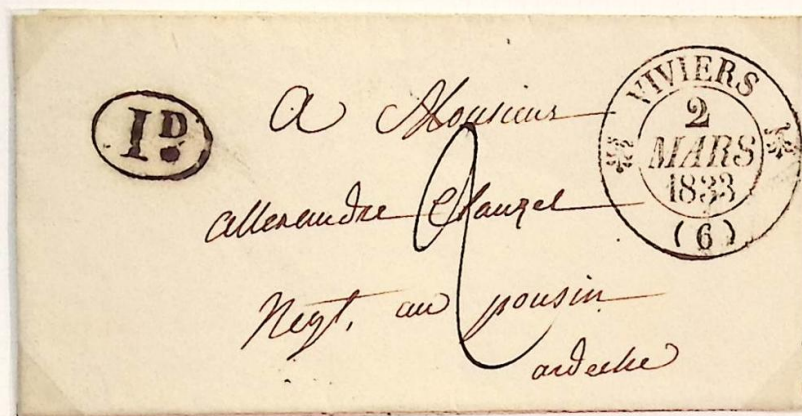 1D.
VIVIERS
2
MARS
1833
(6)
A Monsieur
allexandre Clauzel
Negt. au pousin
ardeche
2